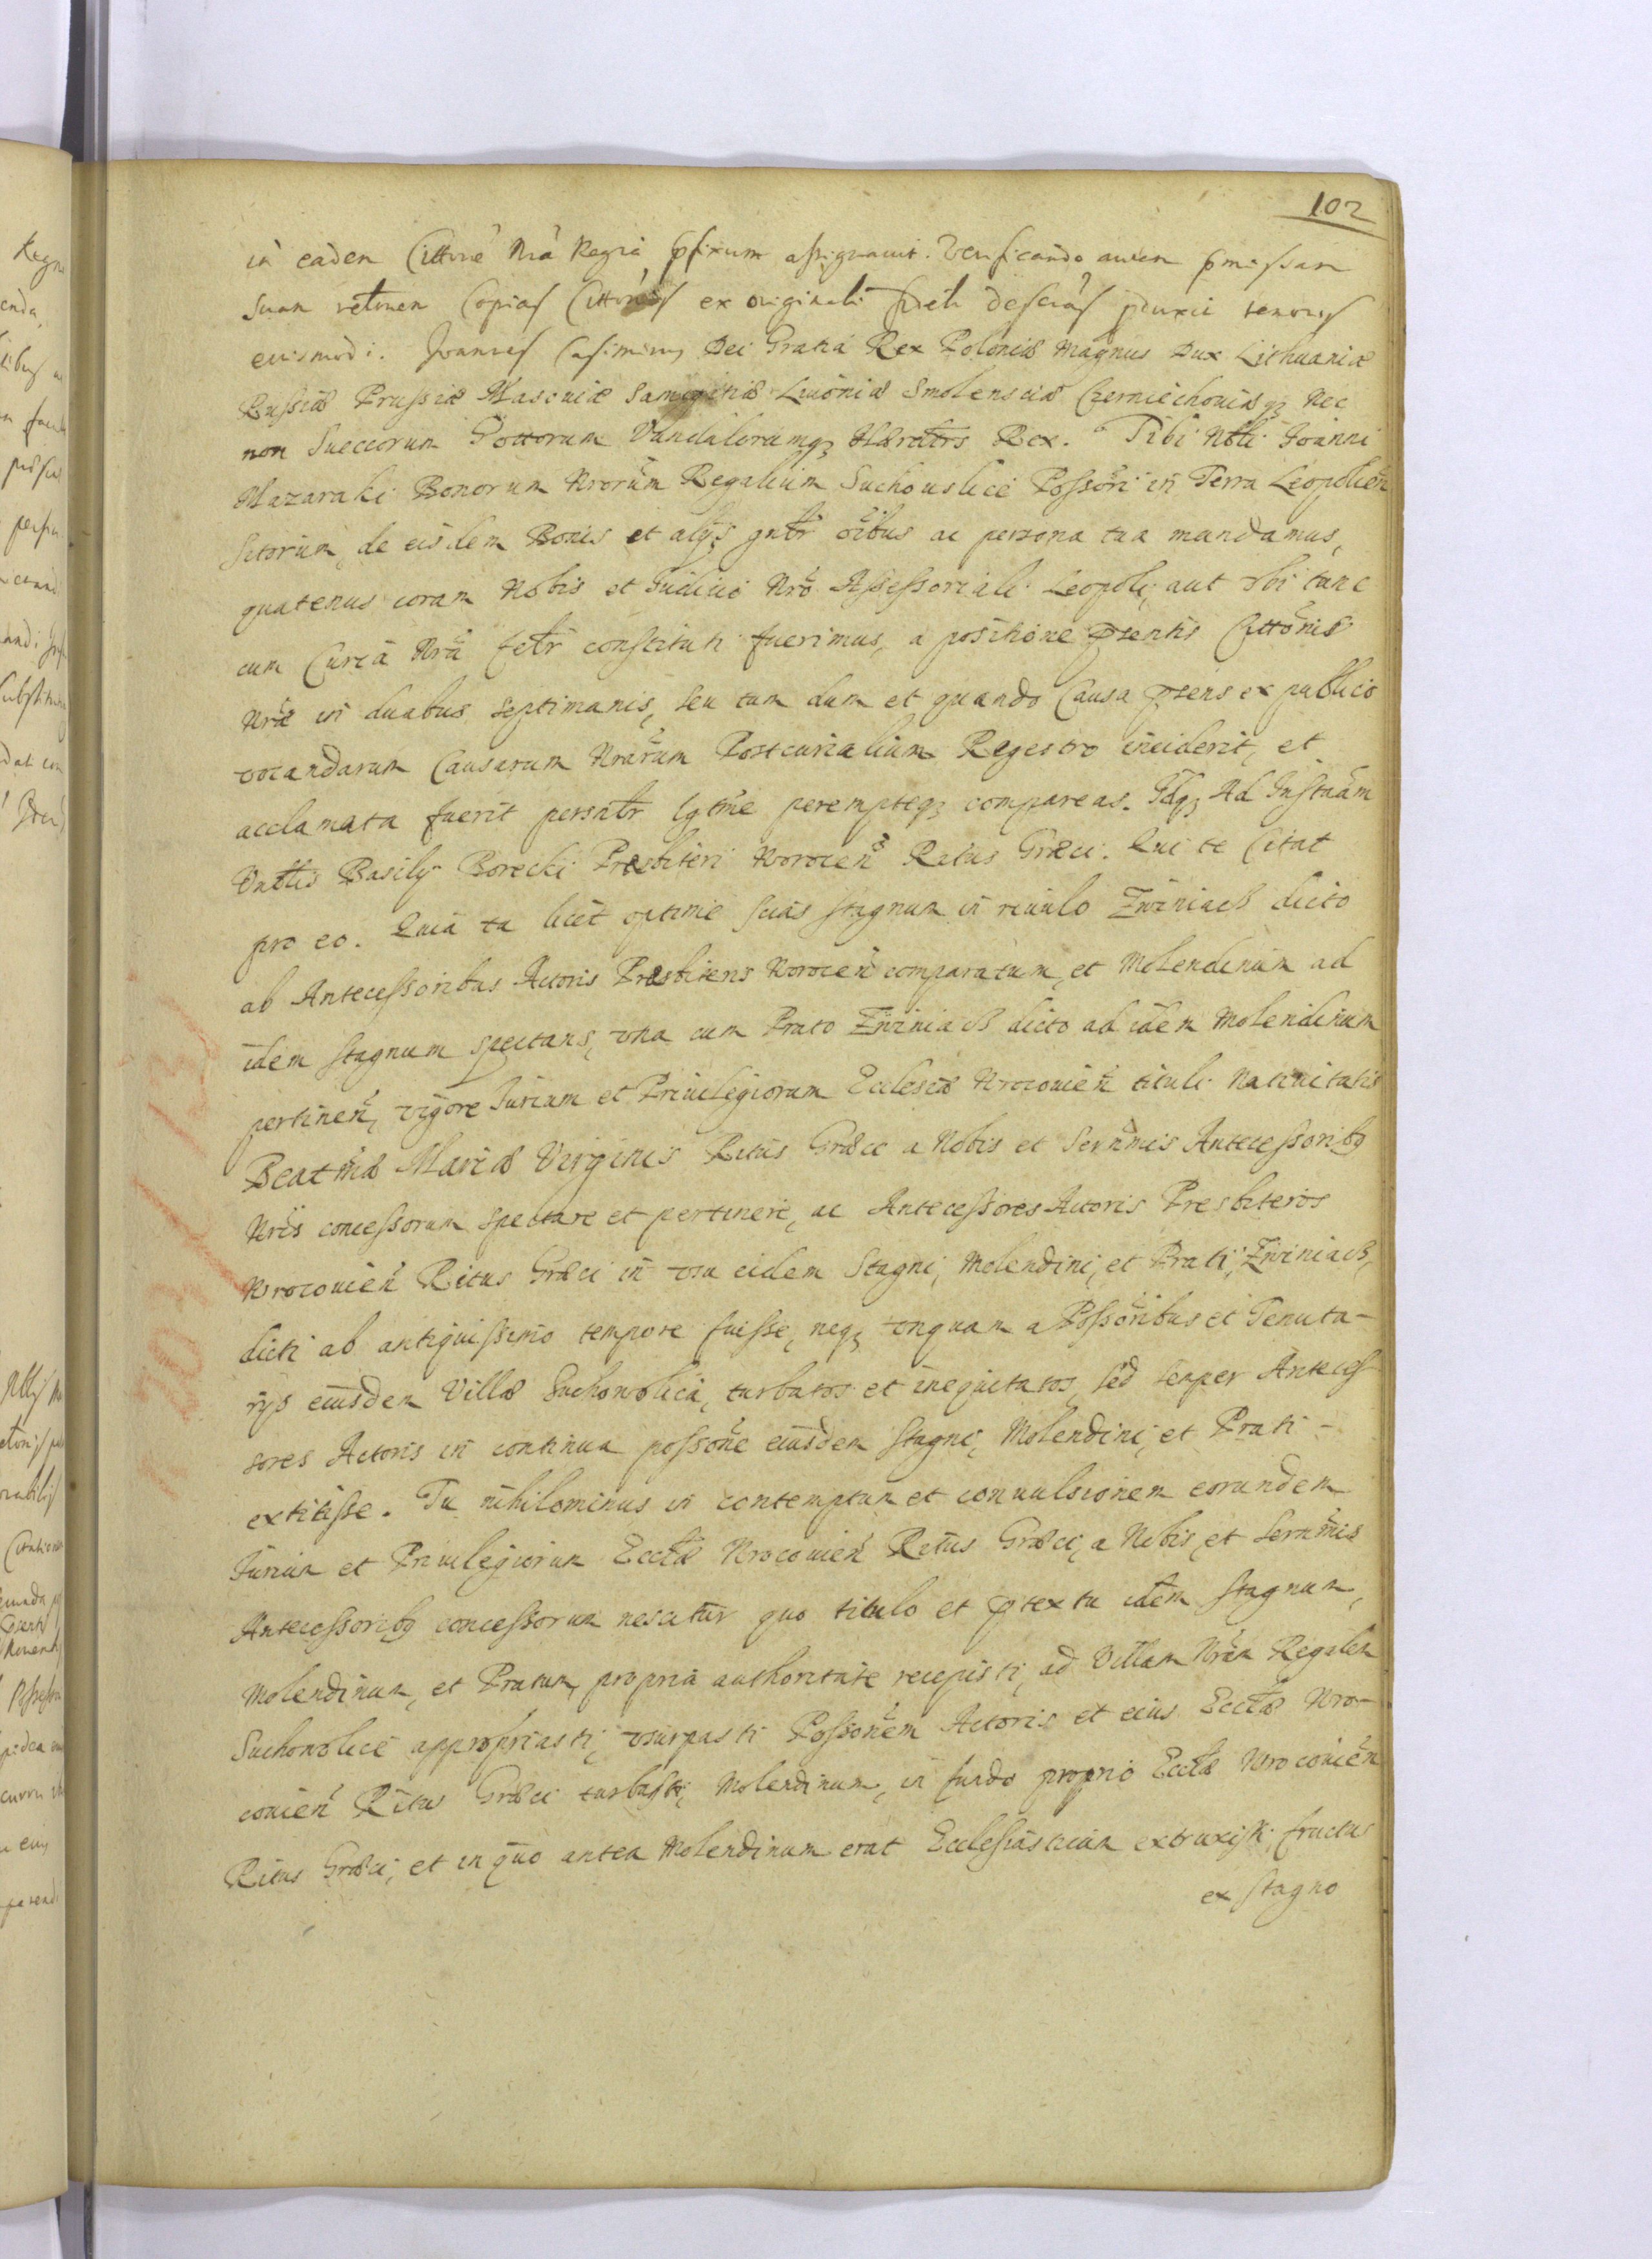 102
in eadem Cittõne Nrã Regia pfixum assignauit. Verificando autem pmissam
suam relõnem Copias Cittõnis ex originali fidelr descrãs pduxit tenoris
eiusmodi. Joannes Casimirus Dei Gratia Rex Poloniæ Magnus Dux Lithuaniæ
Russiæ Prussiæ Masouiæ Samogitiæ Liuoniæ Smolensciæ Czerniechouiæq3 Nec
non Sueccorum Gottorum Vandalorumq3 Hæredtrs Rex. Tibi Nobli Joanni
Mazaraki Bonorum Nrorũm Regalium Suchouslice Possõri in Terra Leopolieñ
sitorum, de eisdem Bonis et alijs gnlr oĩbus ac persona tua mandamus,
quatenus coram Nobis et Judicio Nrõ Assessoriali Leopoli, aut vbi tunc
cum Curia Nrã felr constituti fuerimus, a positione pñtis Cittõnis
Nræ in duabus septimanis, seu tum dum et quando Causa pñs ex publico
vocandarum Causarum Nrarũm Postcurialium Regestro inciderit, et
acclamata fuerit persnlr lgtme peremptèq3 compareas. Idq3 Ad Instnãm
Vnblis Basilij Borecki Presbiteri Wroceñ Ritus Græci. Qui te Citat
pro eo. Quia tu licet optime scias stagnum in riuulo Zwiniacz dicto
ab Antecessoribus Actoris Presbiteris Wroceñ comparatum, et Molendinum ad
idem stagnum spectans, vna cum Prato Zwiniacz dicto ad idem Molendinum
pertineñ, vigore Jurium et Priuilegiorum Ecclesiæ Wrocouieñ tituli Natiuitatis
Beatmæ Mariæ Virginis Ritus Græci a Nobis et Sernmis Antecessorib9
Nrĩs concessorum spectare et pertinere, ac Antecessores Actoris Presbiteros
Wrocouieñ Ritus Græci in vsu eidem Stagni, Molendini, et Prati, Zwiniacz,
dicti ab antiquissimo tempore fuisse, neq3 vnquam a Possõribus et Tenuta-
rijs eiusdem Villæ Suchowolica, turbatos et inequitatos, sed semper Anteces-
sores Actoris in continua possõne eiusdem Stagni, Molendini, et Prati -
extitisse. Tu nihilominus in contemptum et conuulsionem eorundem
Jurium et Priuilegiorum Ecclæ Wrocouieñ Ritus Græci, a Nobis, et Sernmis
Antecessorib9 concessorum nescitur quo titulo et ptextu idem stagnum,
Molendinum, et Pratum, propria authoritate recepisti, ad Villam Nrãm Regalem
Suchowolice appropriasti, vsurpasti Possonẽm Actoris et eius Ecclæ Wro-
couieñ Ritus Græci turbasti, Molendinum, in fundo proprio Ecclæ Wrocouieñ
Ritus Græci, et in quo antea Molendinum erat Ecclesiasticum extruxisti fructus
ex stagno